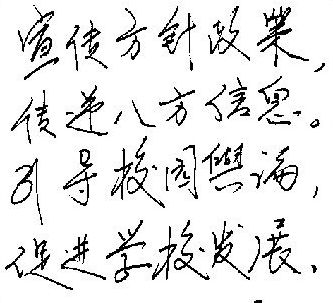 宣传方针政策，
传递八方信息。
引导校园舆论，
促进学校发展、